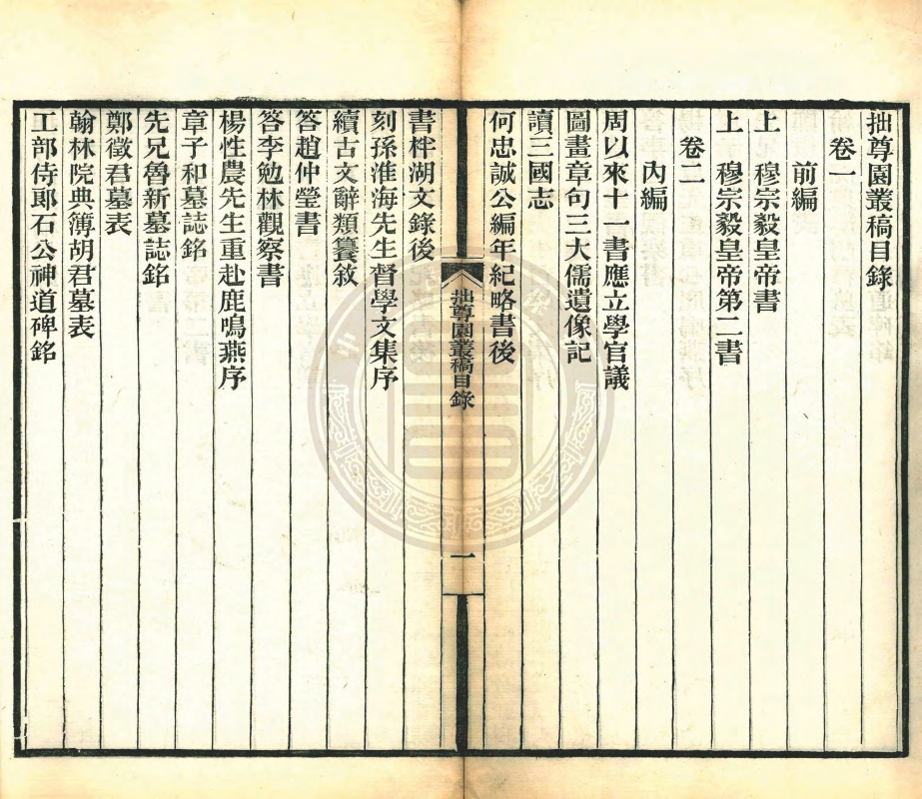 拙尊園叢稿目錄
卷一
前編
上　穆宗毅皇帝書
上　穆宗毅皇帝第二書
卷二
內編
周以來十一書應立學官議
圖畫章句三大儒遺像記
讀三國志
何忠誠公編年紀略書後
拙尊園叢稿目錄
一
書柈湖文錄後
刻孫淮海先生督學文集序
續古文辭類籑敘
答趙仲瑩書
答李勉林觀察書
楊性農先生重赴鹿鳴燕序
章子和墓誌銘
先兄魯新墓誌銘
鄭徵君墓表
翰林院典簿胡君墓表
工部侍郞石公神道碑銘